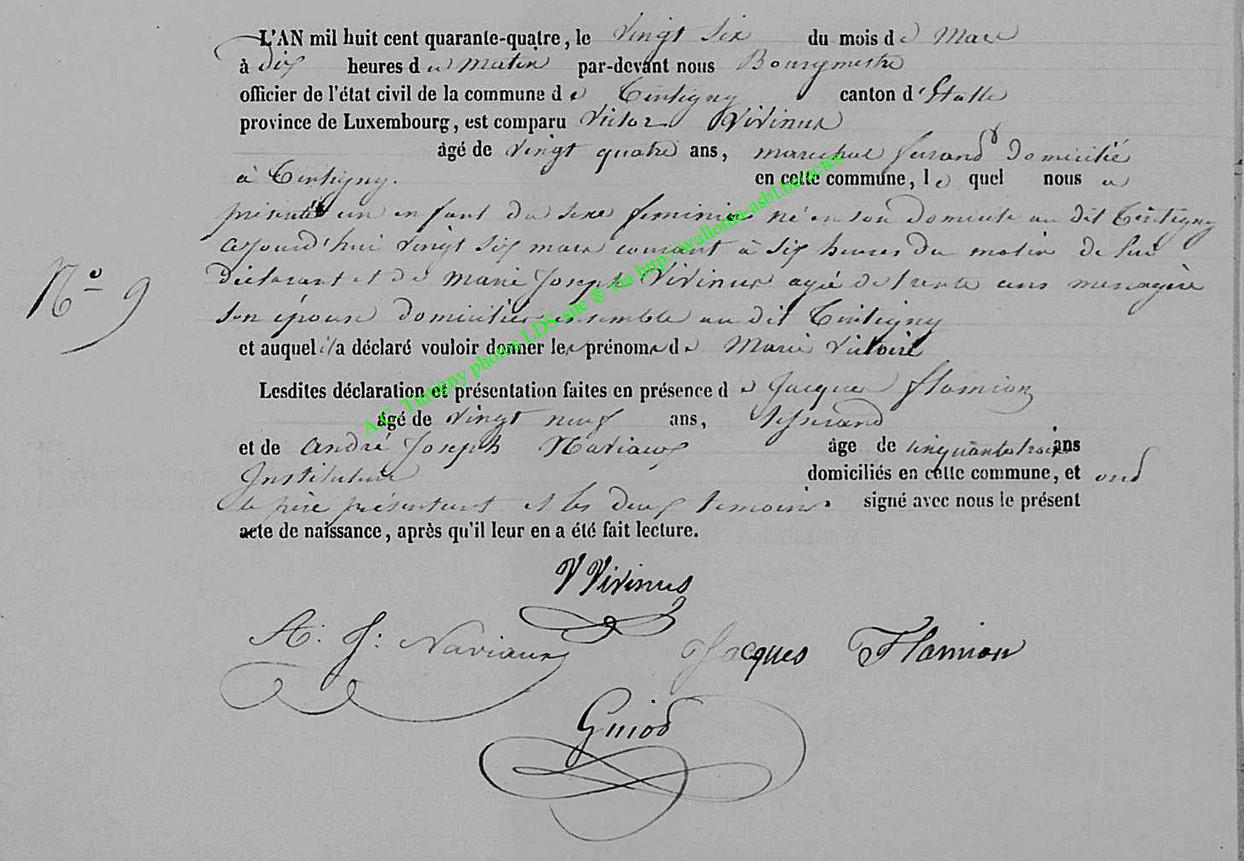 L'AN mil huit cent quarante-quatre, le vingt six du mois de Mars
à dix heures du matin par-devant nous Bourgmestre
officier de l'état civil de la commune de Tintigny canton d'Etalle
province de Luxembourg, est comparu Victor Vivinus
âgé de vingt quatre ans, marechal ferand domicilié
à Tintigny. en cette commune, le quel nous a
présenté un enfant du sexe feminin né en son domicile au dit Tintigny
aujourd'hui vingt six mars courant à six heures du matin de lui
déclarant et de Marie Joseph Vivinus agée de trente ans menagère
son épouse domiciliés ensemble au dit Tintigny
et auquel il a déclaré vouloir donner les prénoms de Marie Victoire
Lesdites déclaration et présentation faites en présence de Jacques Flamion
âgé de vingt neuf ans, tisserand
et de André Joseph Naviaux âge de cinquante trois ans
Instituteur domiciliés en cette commune, et ont
le père présentant et les deux temoins signé avec nous le présent
acte de naissance, après qu'il leur en a été fait lecture.
N° 9
V Vivinus
A. J. Naviaux Jacques Flamion
Guiod
A.C. Tintigny photos LDS-site ® via http://wallonia-asbl.be/actes